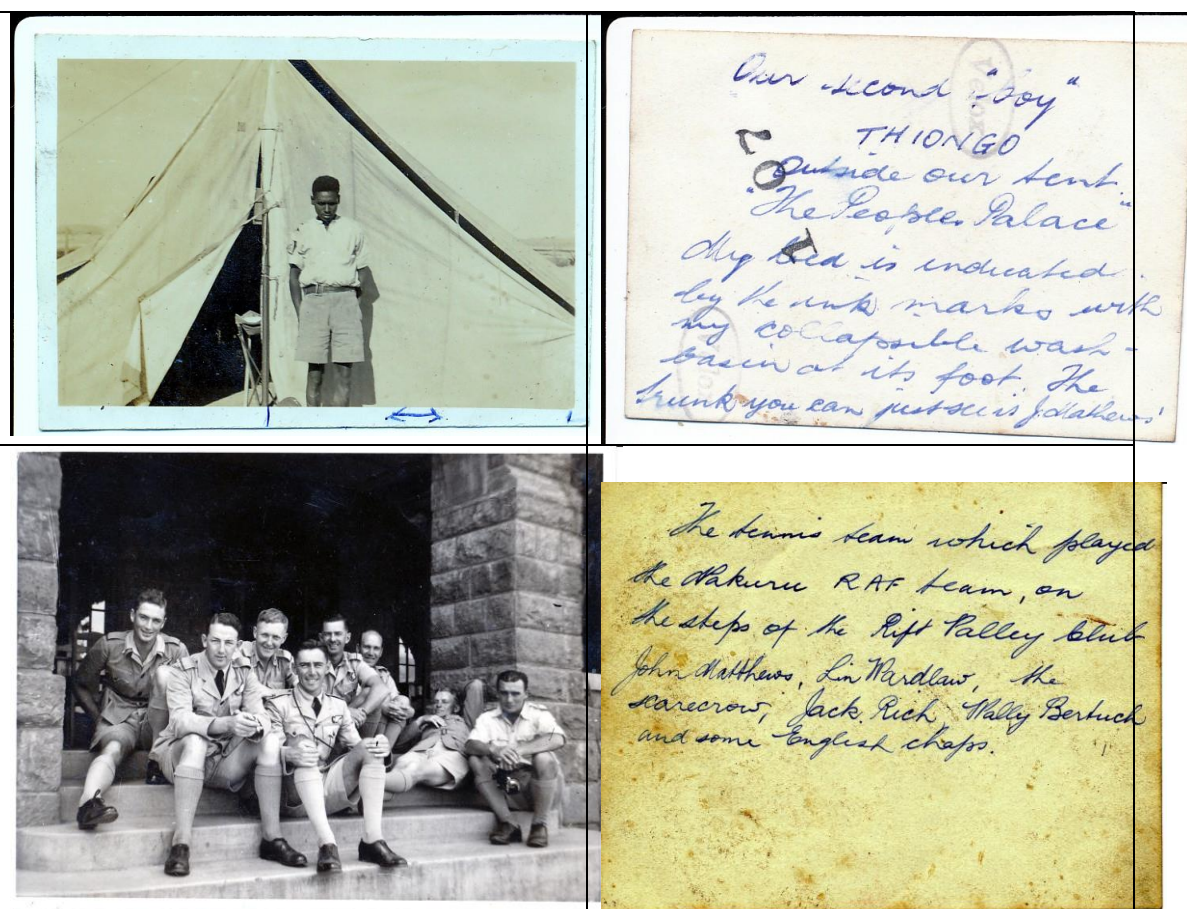 Our second "boy"
THIONGO
outside our tent.
"The Peoples Palace"
My bed is indicated
by the ink marks with
my collapsible wash-
basin at its foot. The
trunk you can just see is J Mathews'
The tennis team which played
the Nakuru RAF team, on
the steps of the Rift Valley Club
John Matthews, Lin Wardlaw, the
scarecrow, Jack Rich, Wally Bertuch
and some English chaps.